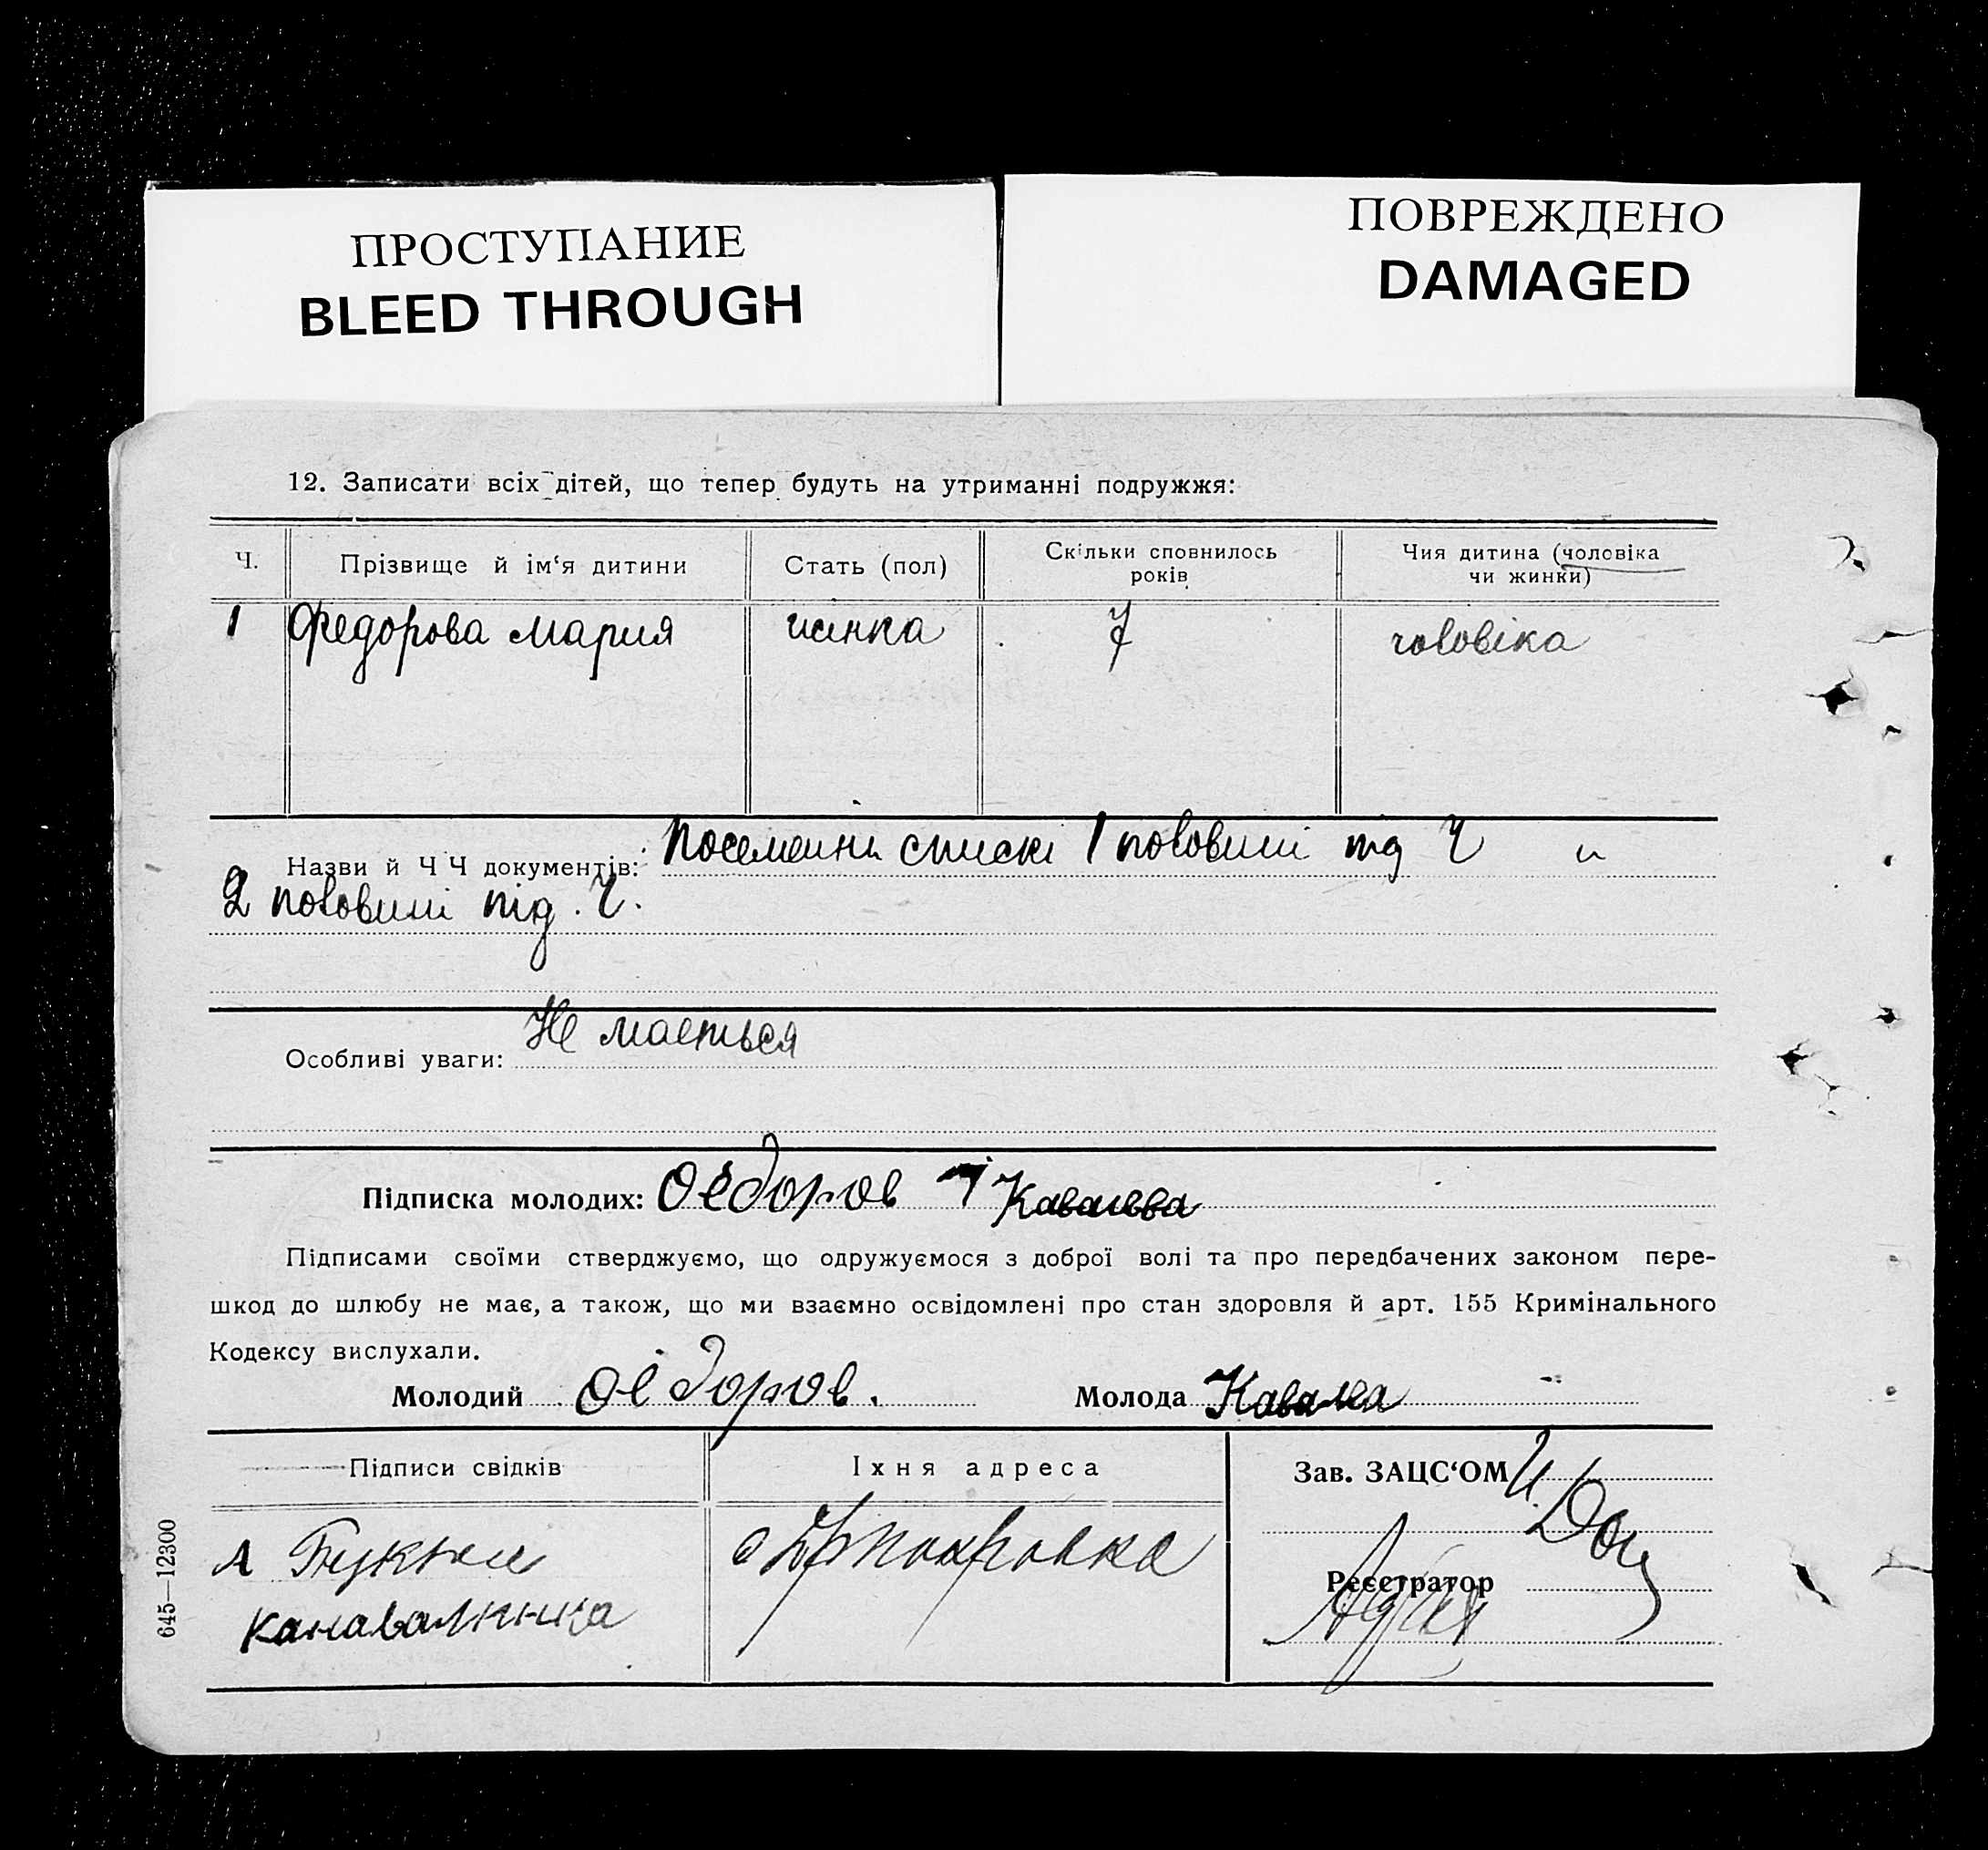 ПРОСТУПАНИЕ
BLEED THROUGH
ПОВРЕЖДЕНО
DAMAGED
12. Записати всіх дітей, що тепер будуть на утриманні подружжя:
Ч. Прізвище й ім‘я дитини Стать (пол) Скільки сповнилось років Чия дитина (чоловіка чи жинки)
1 Федорова Мария жінка 7 чоловіка
Назви й Ч Ч документів: Посемейни списки 1 половини під Ч и
2 половини під Ч.
Особливі уваги: Не мається
Підписка молодих: Федоров
Підписами своїми стверджуємо, що одружуємося з доброї волі та про передбачених законом пере-
шкод до шлюбу не має, а також, що ми взаємно освідомлені про стан здоровля й арт. 155 Кримінального
Кодексу вислухали.
Молодий Федоров. Молода
Підписи свідків Іхня адреса Зав. ЗАЦС‘ОМ
Реєстратор
645—12300